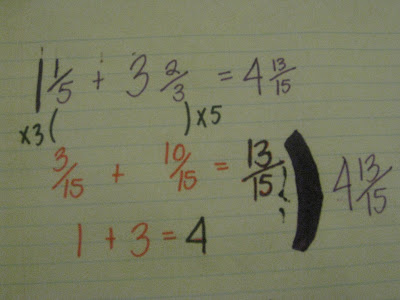 1 1/5 + 3 2/3 = 4 13/15
×3( )×5
3/15 + 10/15 = 13/15 ) 4 13/15
1 + 3 = 4